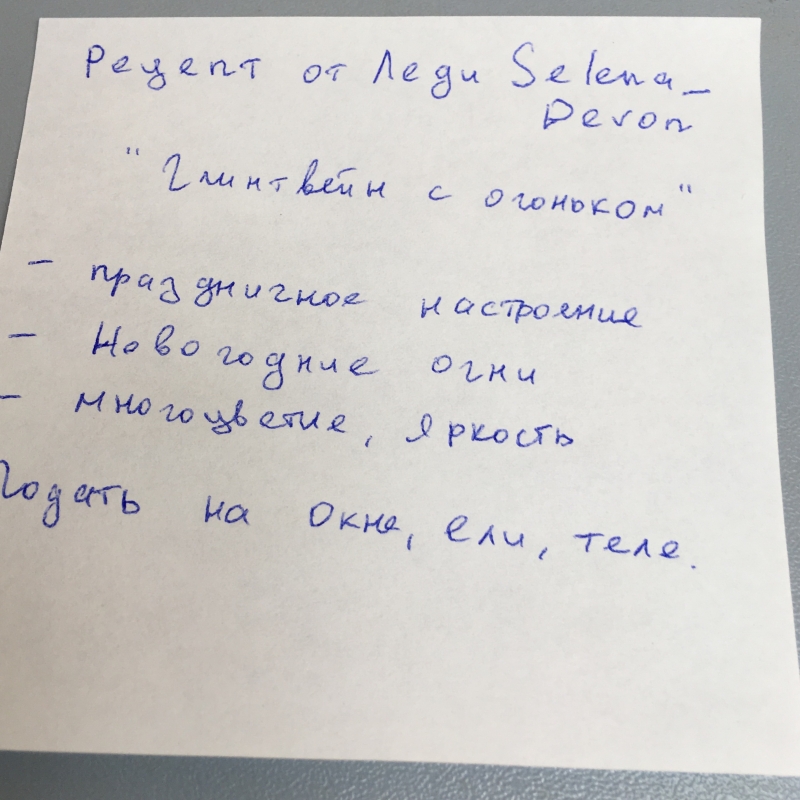 Рецепт от Леди Selena_
Devon
"Глинтвейн с огоньком"
- праздничное настроение
- Новогодние огни
- многоцветие, яркость
Подать на окне, ели, теле.